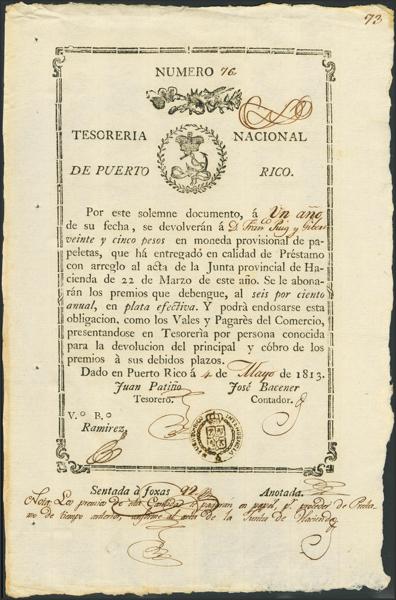 73
NUMERO 76.
TESORERIA NACIONAL
DE PUERTO RICO.
Por este solemne documento, á Un año
de su fecha, se devolverán á D. Fran.co Puig y
veinte y cinco pesos en moneda provisional de pa-
peletas, que há entregado en calidad de Préstamo
con arreglo al acta de la Junta provincial de Ha-
cienda de 22 de Marzo de este año. Se le abona-
rán los premios que debengue, al seis por ciento
anual, en plata efectiva. Y podrá endosarse esta
obligacion, como los Vales y Pagarès del Comercio,
presentandose en Tesorerìa por persona conocida
para la devolucion del principal y cóbro de los
premios à sus debidos plazos.
Dado en Puerto Rico á 4 de Mayo de 1813.
Juan Patiño José Bacener
Tesorero. Contador.
V.º B.º
Ramirez.
Sentada à foxas 92 Anotada.
Nota Los premios de esta Cantidad se pagarán en papel, p.r proceder de Presta
mo de tiempo anterior, conforme al acta de la Junta de Hacienda